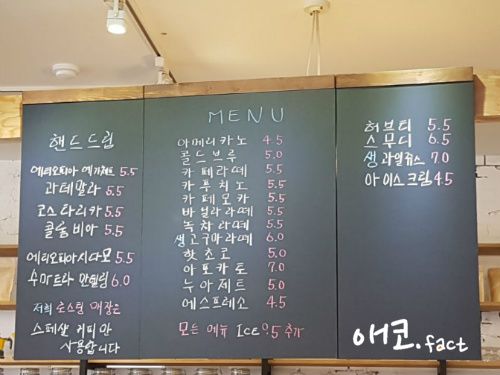 핸드드립
에티오피아 예가체프 5.5
과테말라 5.5
코스타리카 5.5
콜롬비아 5.5
에티오피아시다모 5.5
수마트라 만델링 6.0
저희 손스팀 매장은
스페셜 커피만
사용합니다
MENU
아메리카노 4.5
콜드브루 5.0
카페라떼 5.5
카푸치노 5.5
카페모카 5.5
바닐라라떼 5.5
녹차라떼 5.5
생고구마라떼 6.0
핫초코 5.0
아포카토 7.0
누아제트 5.0
에스프레소 4.5
모든 메뉴 ICE 0.5 추가
허브티 5.5
스무디 6.5
생과일쥬스 7.0
아이스크림 4.5
애코.fact